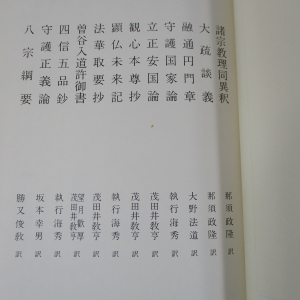 諸宗教理同異釈 那須政隆 訳
大疏談義 那須政隆 訳
融通円門章 大野法道 訳
守護国家論 執行海秀 訳
立正安国論 茂田井教亨 訳
観心本尊抄 茂田井教亨 訳
顕仏未来記 執行海秀 訳
法華取要抄 茂田井教亨 訳
曽谷入道許御書 望月歓厚 茂田井教亨 訳
四信五品鈔 執行海秀 訳
守護正義論 坂本幸男 訳
八宗綱要 勝又俊教 訳